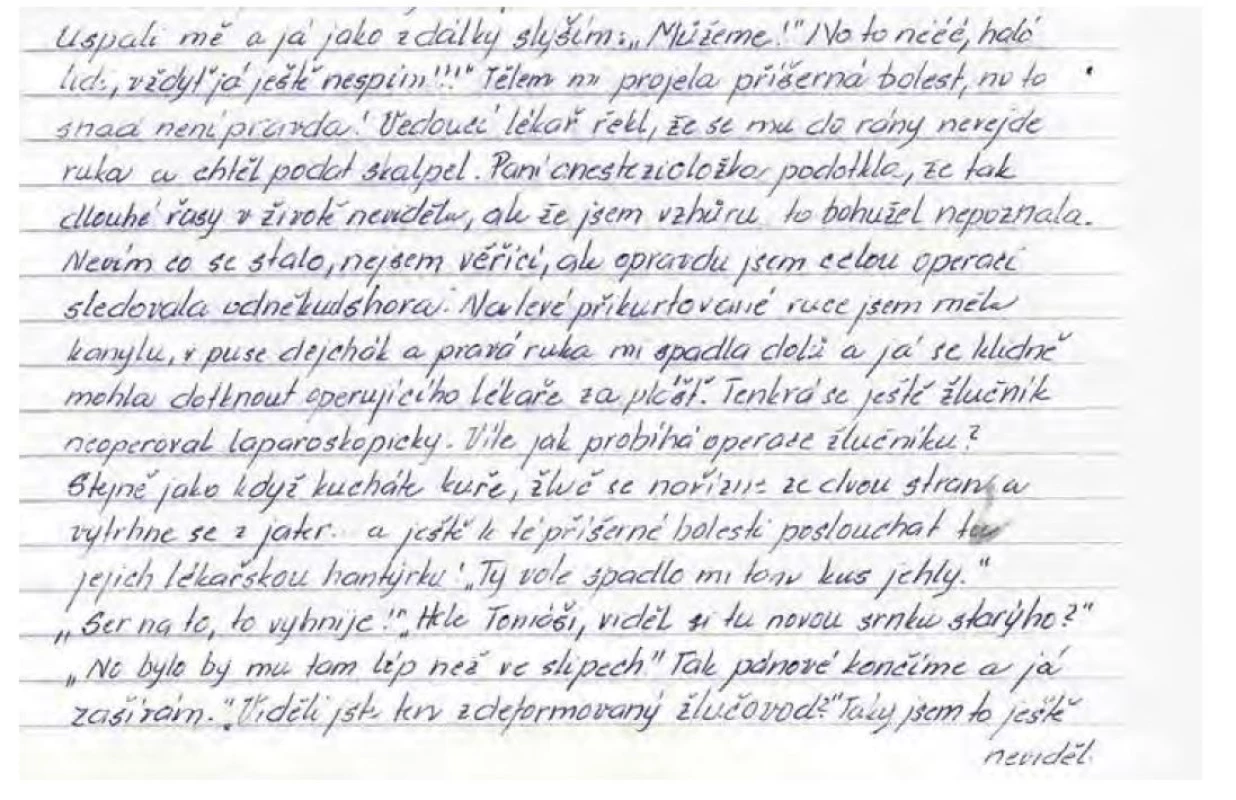 Uspali mě a já jako z dálky slyším: „Můžeme!" No to nééé, haló
lidi, vždyť já ještě nespím!!!" Tělem mi projela příšerná bolest, no to
snad není pravda! Vedoucí lékař řekl, že se mu do rány nevejde
ruka a chtěl podat skalpel. Paní anestezioložka podotkla, že tak
dlouhé řasy v životě neviděla, ale že jsem vzhůru to bohužel nepoznala.
Nevím co se stalo, nejsem věřící, ale opravdu jsem celou operaci
sledovala odněkudshora. Na levé přikurtované ruce jsem měla
kanylu, v puse dejchák a pravá ruka mi spadla dolů a já se klidně
mohla dotknout operujícího lékaře za plášť. Tenkrá se ještě žlučník
neoperoval laparoskopicky. Víte jak probíhá operace žlučníku?
Stejně jako když kucháte kuře, žluč se nařízne ze dvou stran a
vytrhne se z jater... a ještě k té příšerné bolesti poslouchat tu
jejich lékařskou hantýrku! „Ty vole spadlo mi tam kus jehly."
„Ser na to, to vyhnije!" „Hele Tomáši, viděl si tu novou srnku starýho?"
„No bylo by mu tam líp než ve slipech" Tak pánové končíme a já
zašívám." „Viděli jste ten zdeformovaný žlučovod?" Taky jsem to ještě
neviděl.